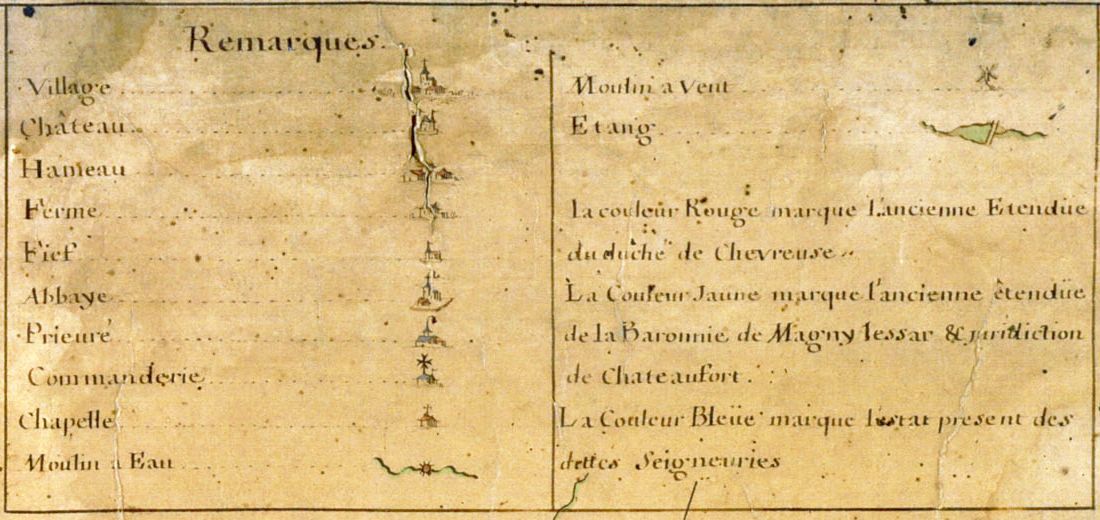 Remarques.
Village
Château
Hameau
Ferme
Fief
Abbaye
Prieuré
Commanderie
Chapelle
Moulin a Eau
Moulin a Vent
Etang
la couleur Rouge marque l'ancienne Etendüe
du duché de Chevreuse.
La Couleur Jaune marque l'ancienne êtendüe
de la Baronnie de Magny lessar & juridiction
de Chateaufort.
La Couleur Bleüe marque l'estat present des
dittes Seigneuries